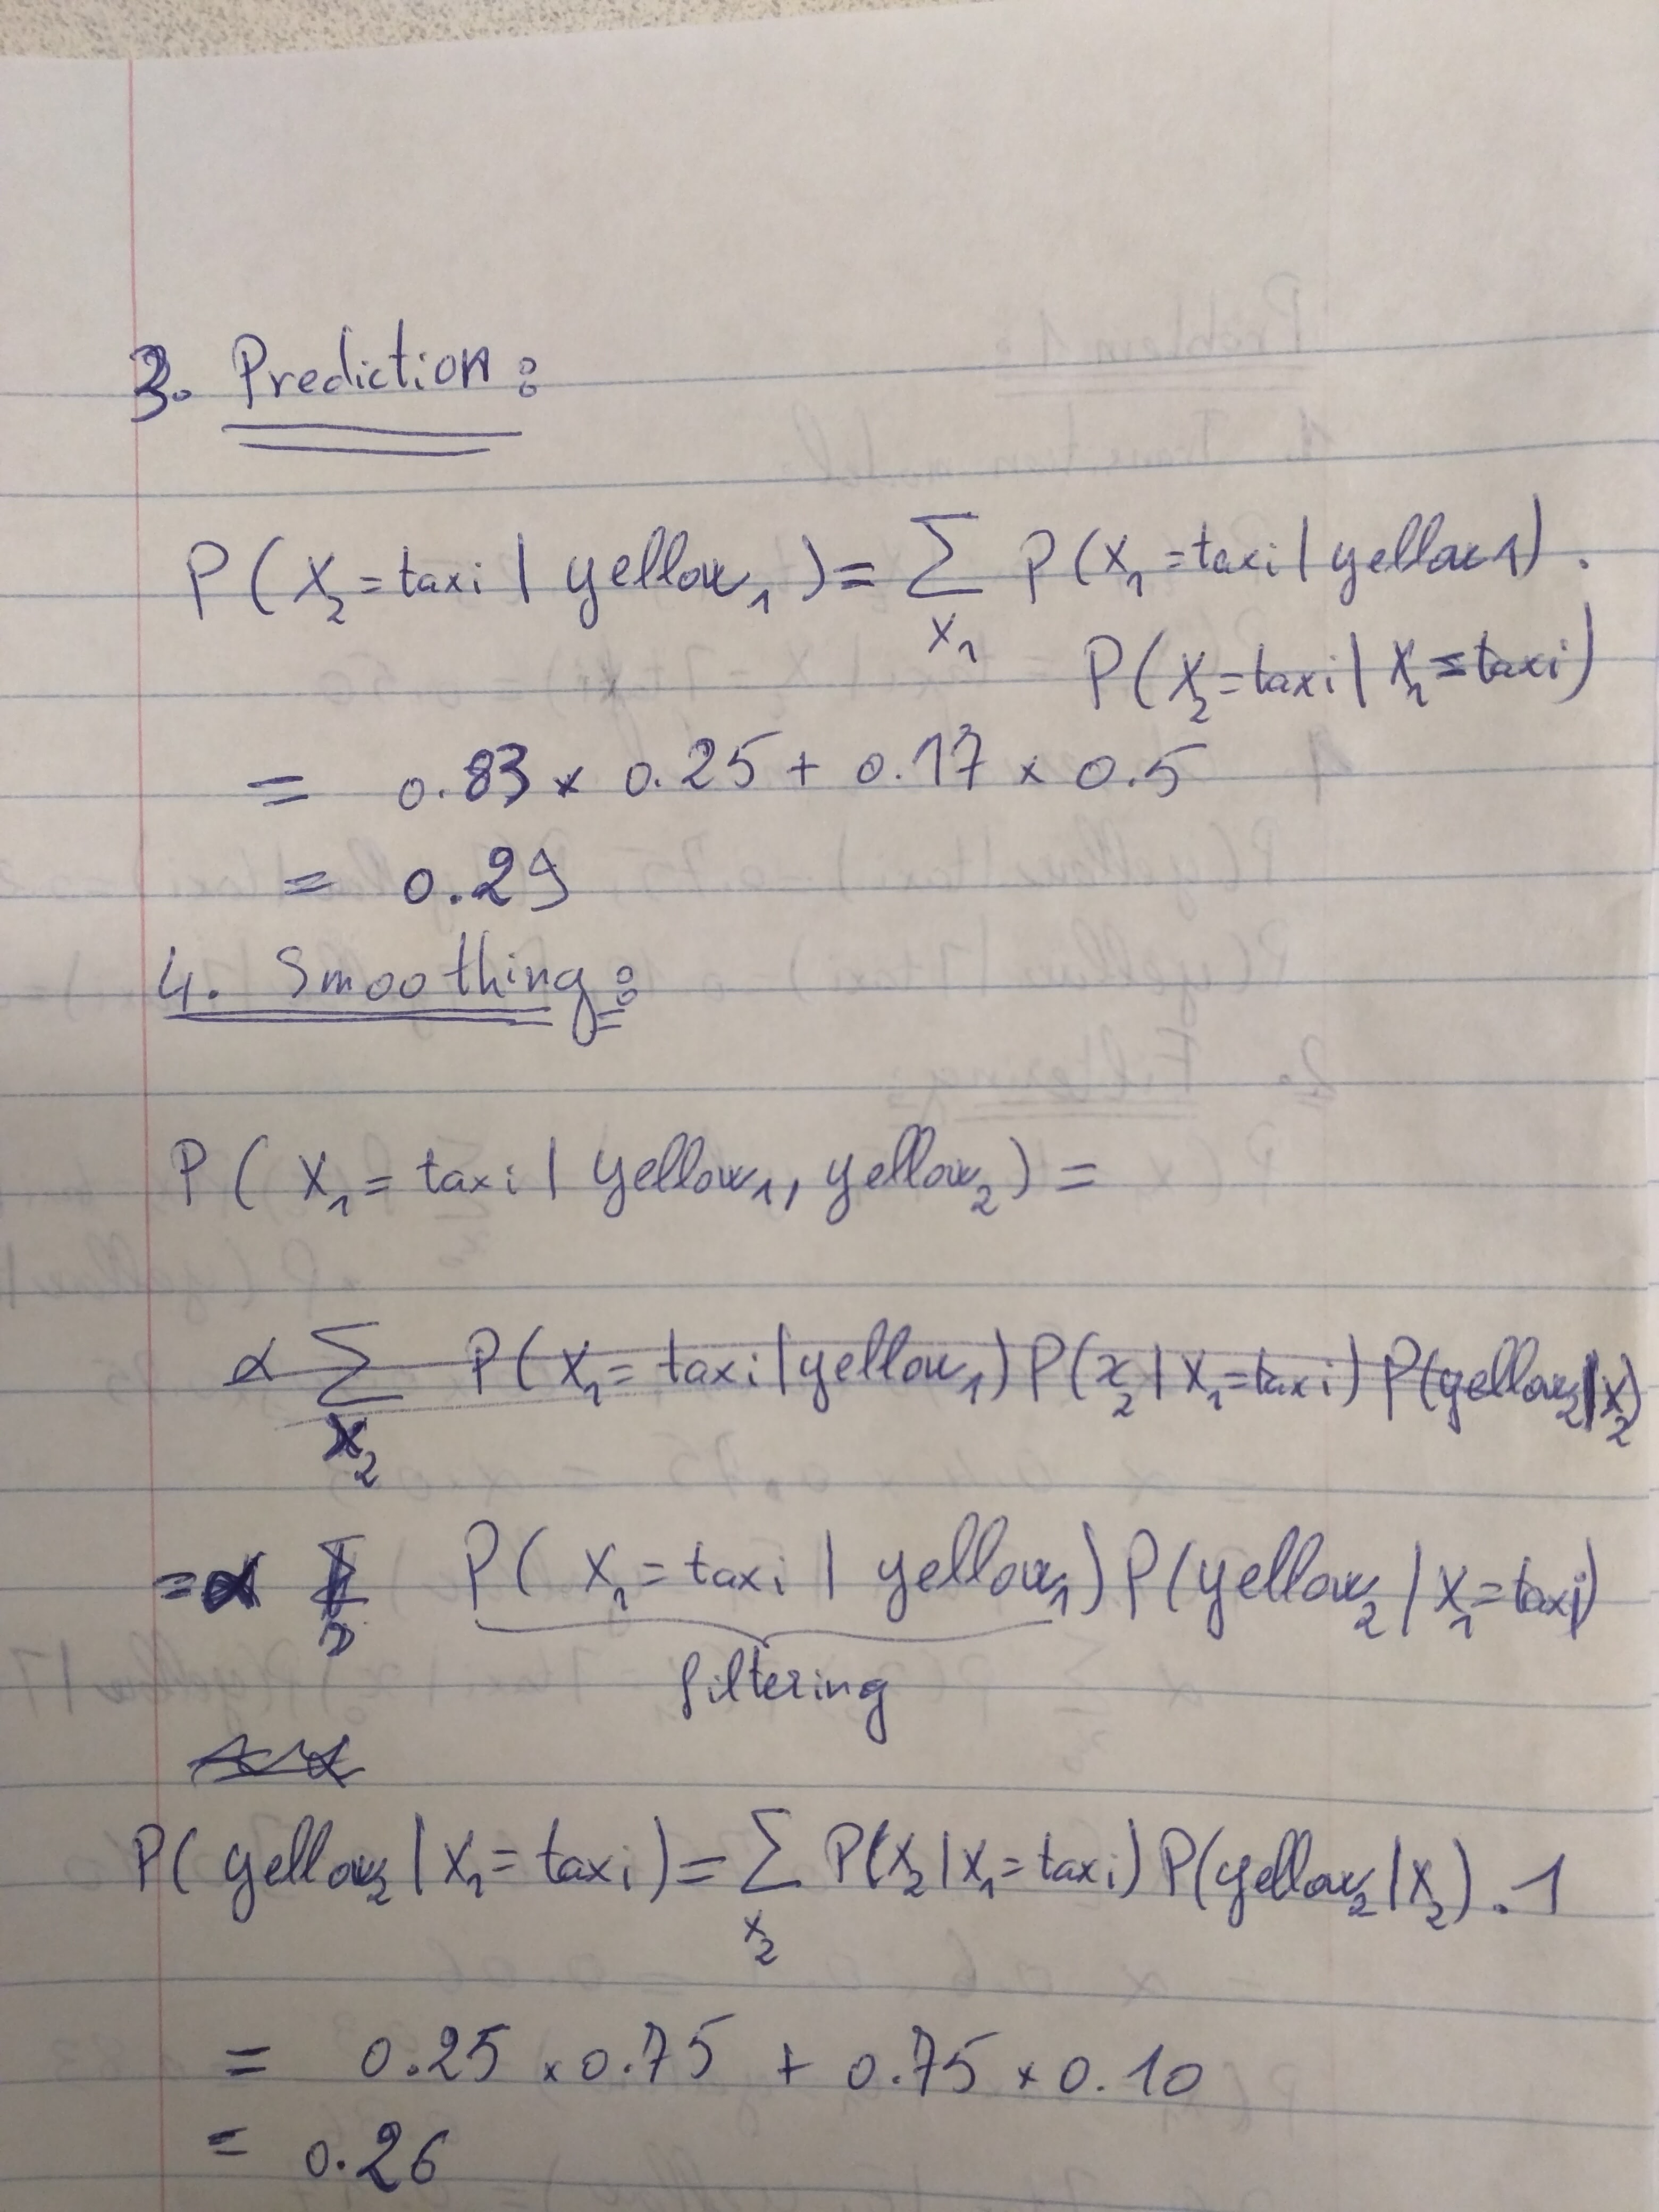 3. Prediction:
P(X₂=taxi | yellow₁) = ∑ P(X₁=taxi | yellow1).
X₁
P(X₂=taxi | X₁=taxi)
= 0.83 × 0.25 + 0.17 × 0.5
= 0.29
4. Smoothing:
P(X₁=taxi | yellow₁, yellow₂) =
α ∑ P(X₁=taxi | yellow₁) P(x₂ | X₁=taxi) P(yellow₂ | X₂)
X₂
= α P(X₁=taxi | yellow₁) P(yellow₂ | X₁=taxi)
filtering
P(yellow₂ | X₁=taxi) = ∑ P(X₂ | X₁=taxi) P(yellow₂ | X₂).1
x₂
= 0.25 × 0.75 + 0.75 × 0.10
= 0.26